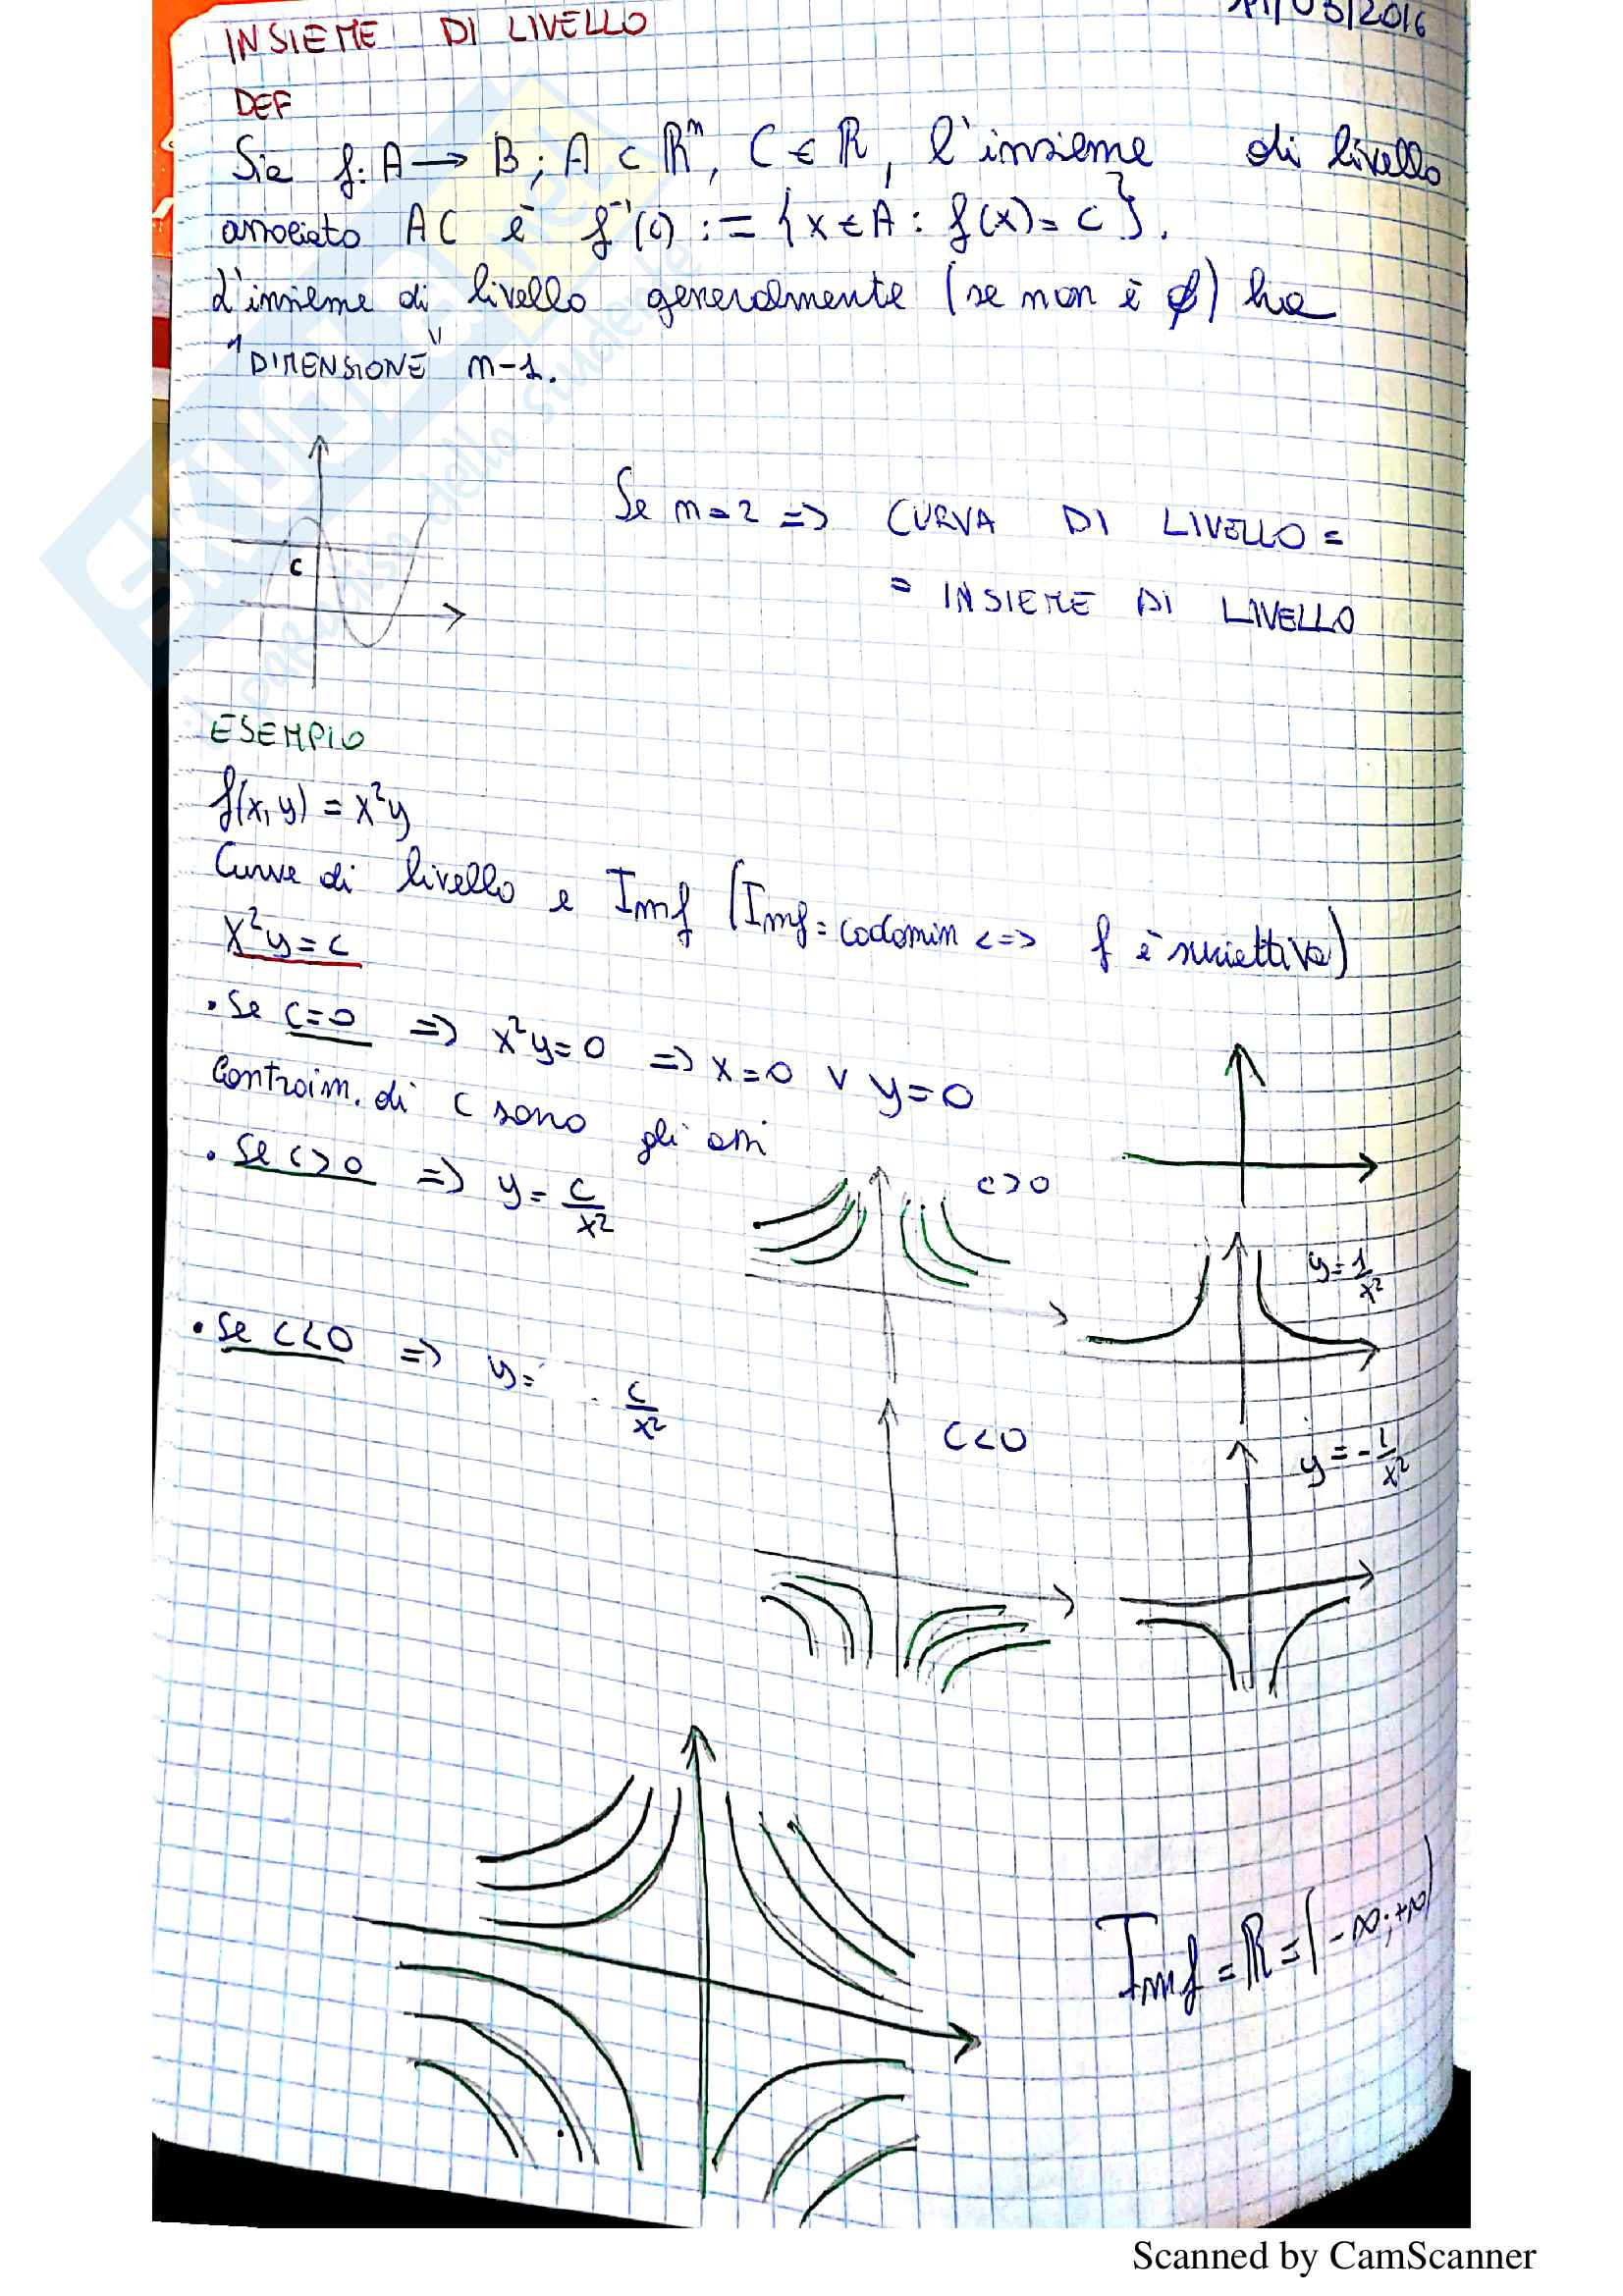 INSIEME DI LIVELLO
/03/2016
DEF
Sia f: A → B; A ⊂ ℝⁿ, C ∈ ℝ, l'insieme di livello
associato A C è f⁻¹(c) := {x ∈ A : f(x) = c}.
L'insieme di livello generalmente (se non è ∅) ha
"DIMENSIONE" n-1.
c
Se n=2 => CURVA DI LIVELLO =
= INSIEME DI LIVELLO
ESEMPIO
f(x,y) = x²y
Curve di livello e Imf (Imf = codomin <=> f è suriettiva)
x²y = c
• Se c=0 => x²y=0 => x=0 v y=0
Controim. di c sono gli assi
• Se c>0 => y = c/x²
c>0
y = 1/x²
• Se c<0 => y = - c/x²
C<0
y = -1/x²
Imf = ℝ = (-∞; +∞)
SKUOLA.NET
il paradiso dello studente
Scanned by CamScanner